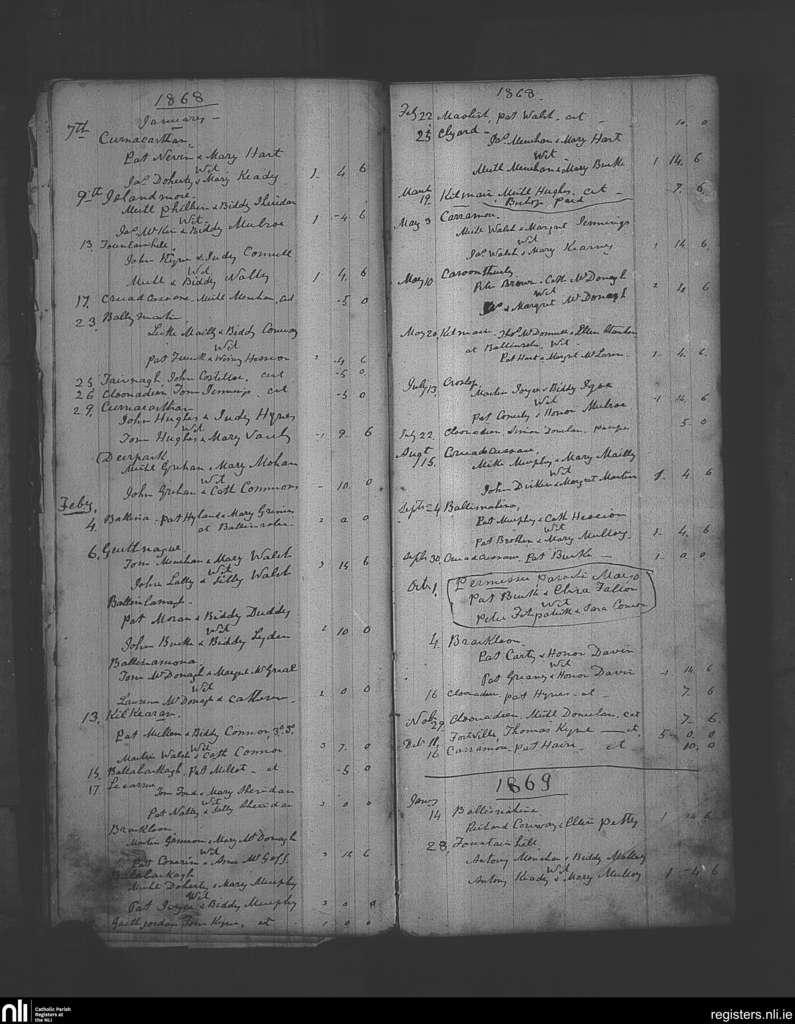 1868
January
7th Curnacarthan,
Pat Nevin & Mary Hart
Wit
Jas Doherty & Mary Keady 1 - 4 6
9th Islandmore.
Michl Philbin & Biddy Sheridan
Wit
Jas McKin & Biddy Mulroe 1 - 4 6
13. Fountainhill,
John Kyne & Judy Connell
Wit
Michl & Biddy Nalty 1 4. 6
17. Michl Menehan, Cet - 5 0
23. Bally
Luke Mailly & Biddy Conway
Wit
Pat & Winny Hession 2 - 4 6
25 Tavnagh, John Costelloe, cet - 5 0.
26 Cloonadeen Tom Jennings, cet - 5 0
29. Curnacarthan
John Hughes & Judy Hynes
Wit
Tom Hughes & Mary Vauly - 1 9. 6
Deerpark
Michl Grehan & Mary Mohan
Wit
John Grehan & Cath Commons - 10. 0
Feby.
4. Ballina. Pat Hyland & Mary
at Ballinrobe. 2 0 0
6. Gurthnague
Tom Menehan & Mary Walsh
Wit
John Lally & Silly Walsh 3 14 6
Pat Moran & Biddy Duddy
Wit
John Burke & Biddy Lyden 2 10 0
Ballinamona
Tom McDonagh & Margret McGreal
Wit
Laurence McDonagh & Catherine 2 0 0
13. Kilkearan.
Pat Mullen & Biddy Connor, 3d. 3d.
Wit
Martin Walsh & Cath Connor 3 7. 0
15. Pat Millet - et - 5 0
17. Lecarrow
Tom Ford & Mary Sheridan
Wit
Pat Nalty & Silly Sheridan 3 0 0
Brackloon
Martin Gannon & Mary McDonagh
Wit
Pat & Anne McGoff. 3 14 6
Michl Doherty & Mary Murphy
Wit
Pat Joyce & Biddy Murphy 3 0 0
Tom Kyne, et 1 0 0
1868.
Feb 22. Pat Walsh. cet - 10. 0
25 Clyard -
Jas Menehan & Mary Hart
Wit
Michl Menehan & Mary Burke 1 14. 6
March
19. Kilmain, Michl Hughes, cet - 7. 6
Bishop paid
May 3 Carramore.
Michl Walsh & Margret Jennings
Wit
Jas Walsh & Mary Kearney 1 14 6
May 10
Peter Brown & Cath McDonagh
Wit
& Margret McDonagh 2 4 6
May 20. Kilmain - Thos McDonnell & Ellen
at Ballinrobe, Wit -
Pat Hart & Margret McLaren. 1. 4. 6.
July 13. Crossboy
Martin Joyce & Biddy
Wit
Pat & Honor Mulroe - 1 14 6
July 22. Cloonadeen Simon Donelan, pauper 5 0
Augt
15.
Mike Murphy & Mary Mailly
Wit
John Dirkin & Margret Martin 1. 4 6
Septr 24 Ballinahina,
Pat Murphy & Cath Hession
Wit
Pat Brothen & Mary Mulloy 1. 4. 6
Septr 30. Pat Burke - 1 - 0 0
Octr 1, Permissu Parochi Mayo
Pat Burke & Eliza Fallon
Wit
Peter Fitzpatrick & Sara Connor
4. Brackloon.
Pat Carty & Honor Davin
Wit
Pat Greany & Honor Davin - 1 14 6
16 Cloonadeen, Pat Hynes - et - 7. 6
Nob
29. Cloonadeen, Michl Donelan, cet 7 - 6.
Decr 11. Fortville, Thomas Kyne — et. 5 - 0. 0
16 Carramore Pat Haire. et 10. 0
1869
Jany
14 Ballinahina
Richard Conway & Ellen Petty 1 14 6
28. Fountain hill.
Antony Menehan & Biddy Malley
Wit
Antony Keady & Mary Mulloy 1 - 4 6
nli
Catholic Parish
Registers at
the NLI
registers.nli.ie